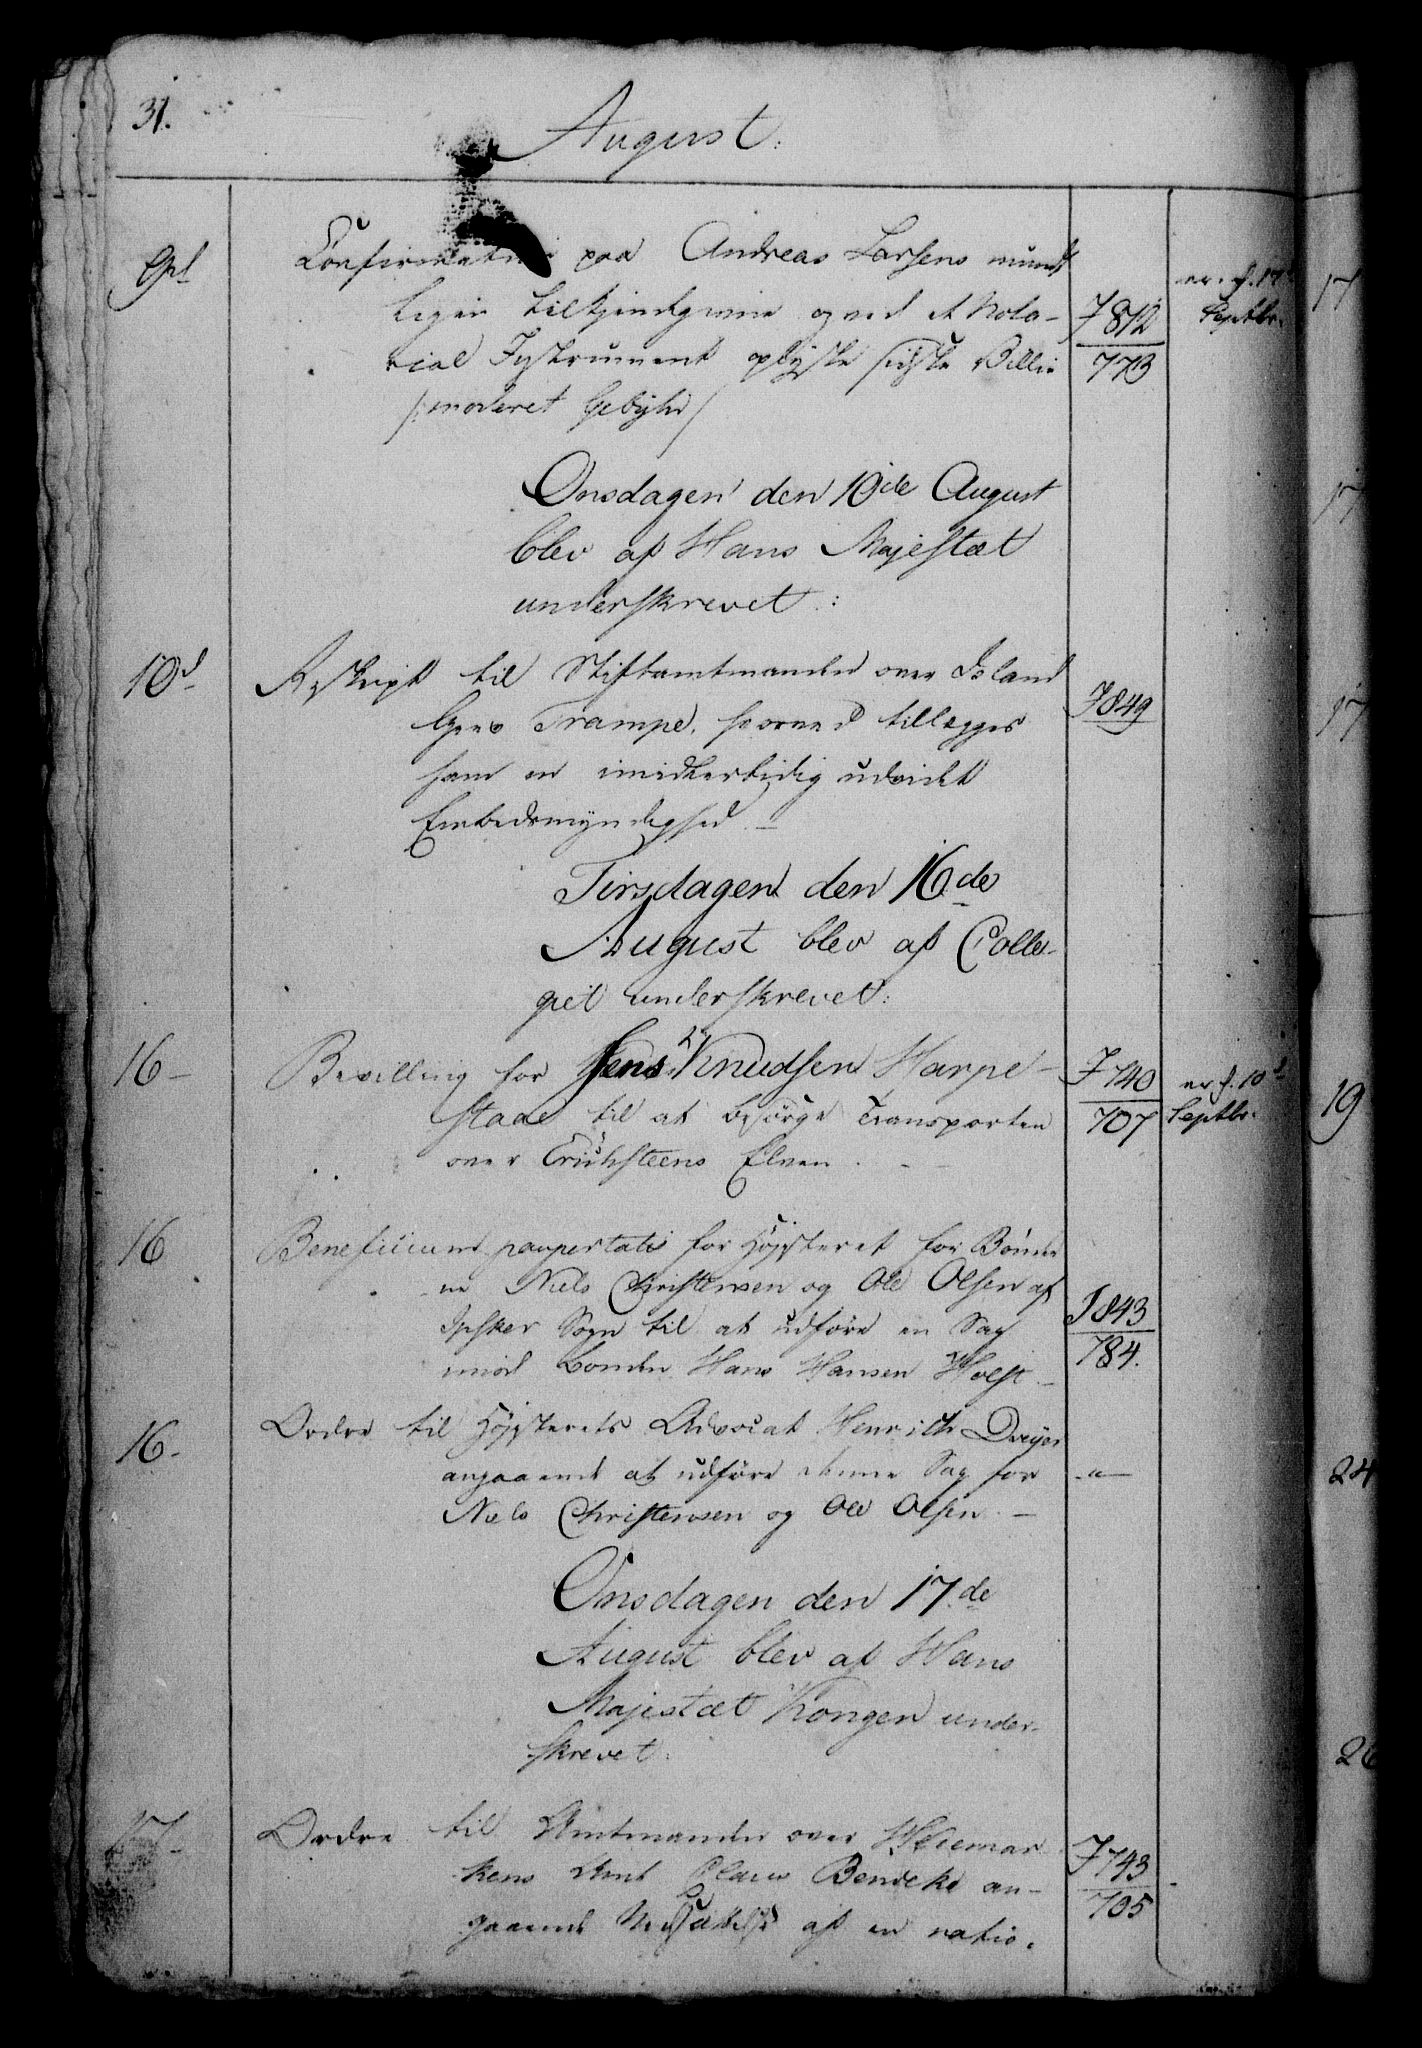 31.
August:
9d
Confirmation paa Andreas Larsens mundt
ligen tilkjendgivne og ved et Nota-
rial Instrument oplyste sidste Villie
/: moderet Gebyhr /
J 812
773
er. f. 17d
Septbr.
Onsdagen den 10de August
blev af Hans Majestæt
underskrevet :
10d
Reskript til Stiftamtmanden over Island
Grev Trampe, hvorved tillægges
ham en imidlertidig udvidet
Embedsmyndighed. -
J 849
Tirsdagen den 16de
August blev af Colle-
giet underskrevet:
16 -
Bevilling for Jens Knudsen Harpe-
stad til at besørge Transporten
over Erichsteens Elven. -
J 740
707
er f. 10d
Septbr.
16
Beneficium paupertatis for Højesteret for Bønder
ne Niels Christensen og Ole Olsen af
Ipsker Sogn til at udføre en Sag
mod Bonden Hans Hansen Holst -
J 843
784.
16 -
Ordre til Højesterets Advocat Henrich Dreyer
angaaende at udføre denne Sag for
Niels Christensen og Ole Olsen. -
- " -
Onsdagen den 17de
August blev af Hans
Majestæt Kongen under-
skrevet:
17 -
Ordre til Amtmanden over Hedemar
kens Amt Claus Bendeke an-
gaaende Nedsættelse af en natio-
J 743
705
17
17
17
19
24
26